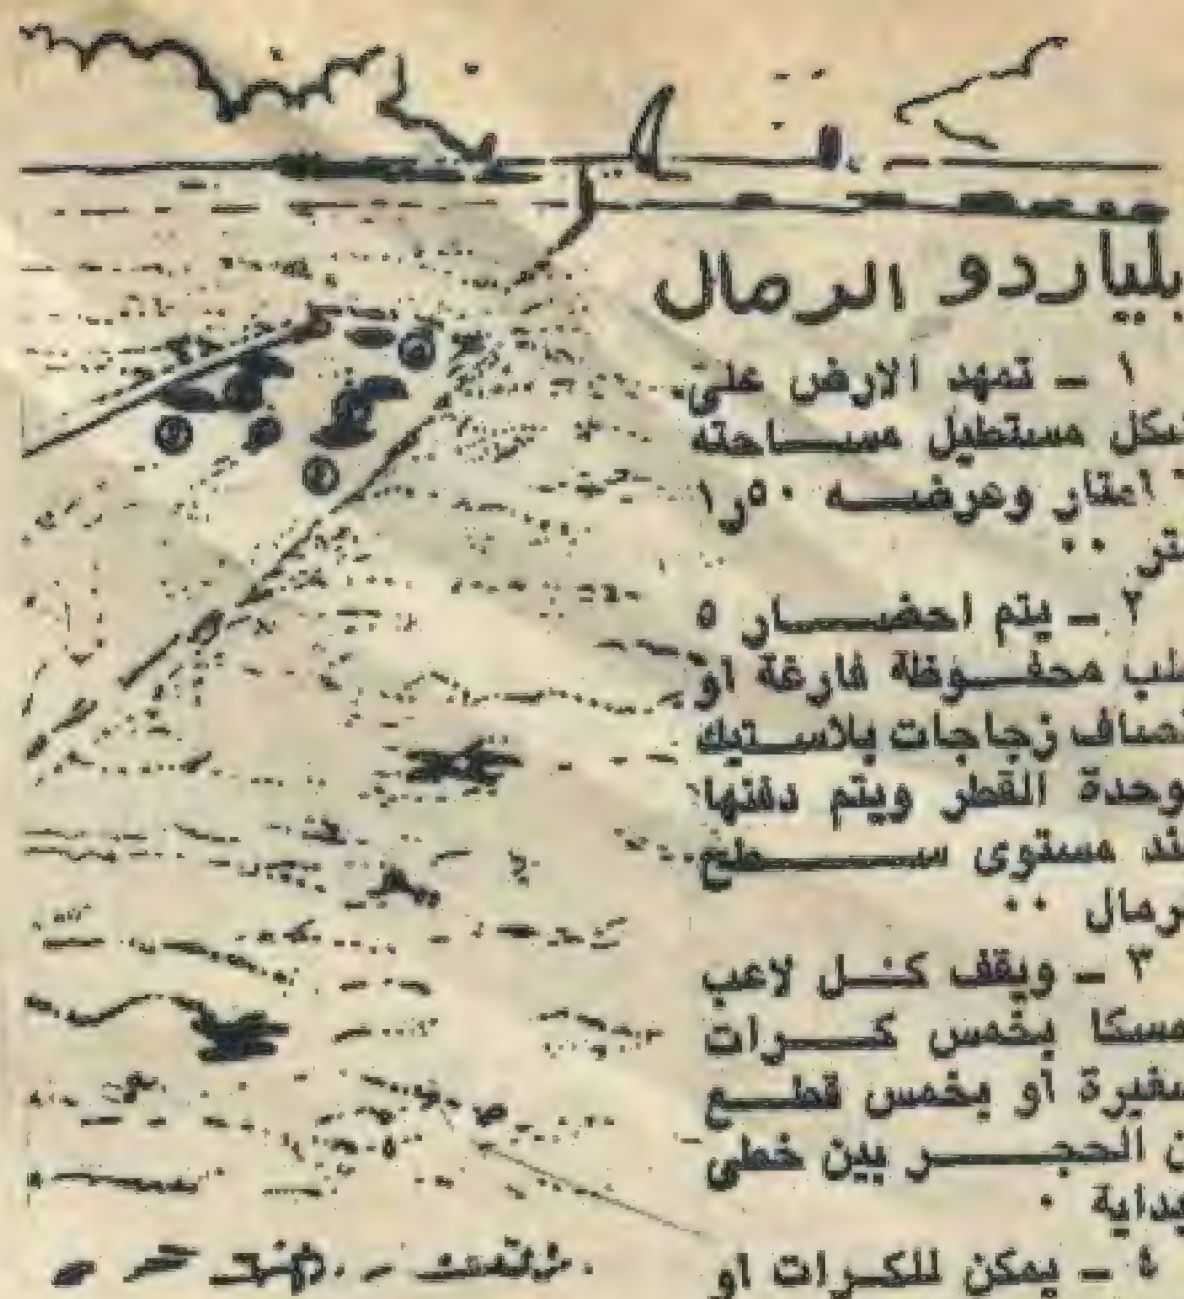 بلياردو الرمال
١ ـ تمهد الارض على
شكل مستطيل مساحته
امتار وعرضه ١٫٥٠
متر ..
٢ ـ يتم احضار ٥
علب محفوظة فارغة او
انصاف زجاجات بلاستيك
موحدة القطر ويتم دفنها
عند مستوى سطح
الرمال ..
٣ ـ ويقف كل لاعب
ممسكا بخمس كرات
صغيرة او بخمس قطع
من الحجر بين خطى
البداية .
٤ ـ يمكن للكرات او